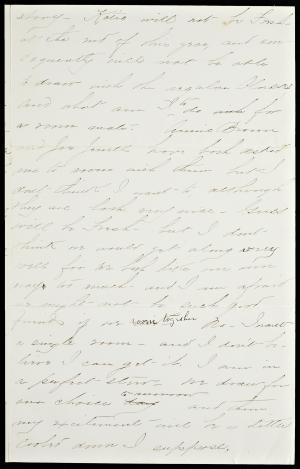 story - Katie will not be Fresh
at the rest of this year and con
sequently will not be able
to draw with the regular Classes
and what am I to do for
a room mate. Annie Brown
and have both asked
me to room with them but I
don't think I want to although
they are both very nice -
will be Fresh - but I don't
think we would get along very
well for we both like our own
way too much - and I am afraid
we might not be such good
friends if we room together No - I want
a single room - and I don't be-
lieve I can get it. I am in
a perfect stew - we draw for
our choice tomorrow and then
my excitement will be a little
cooled down I suppose.